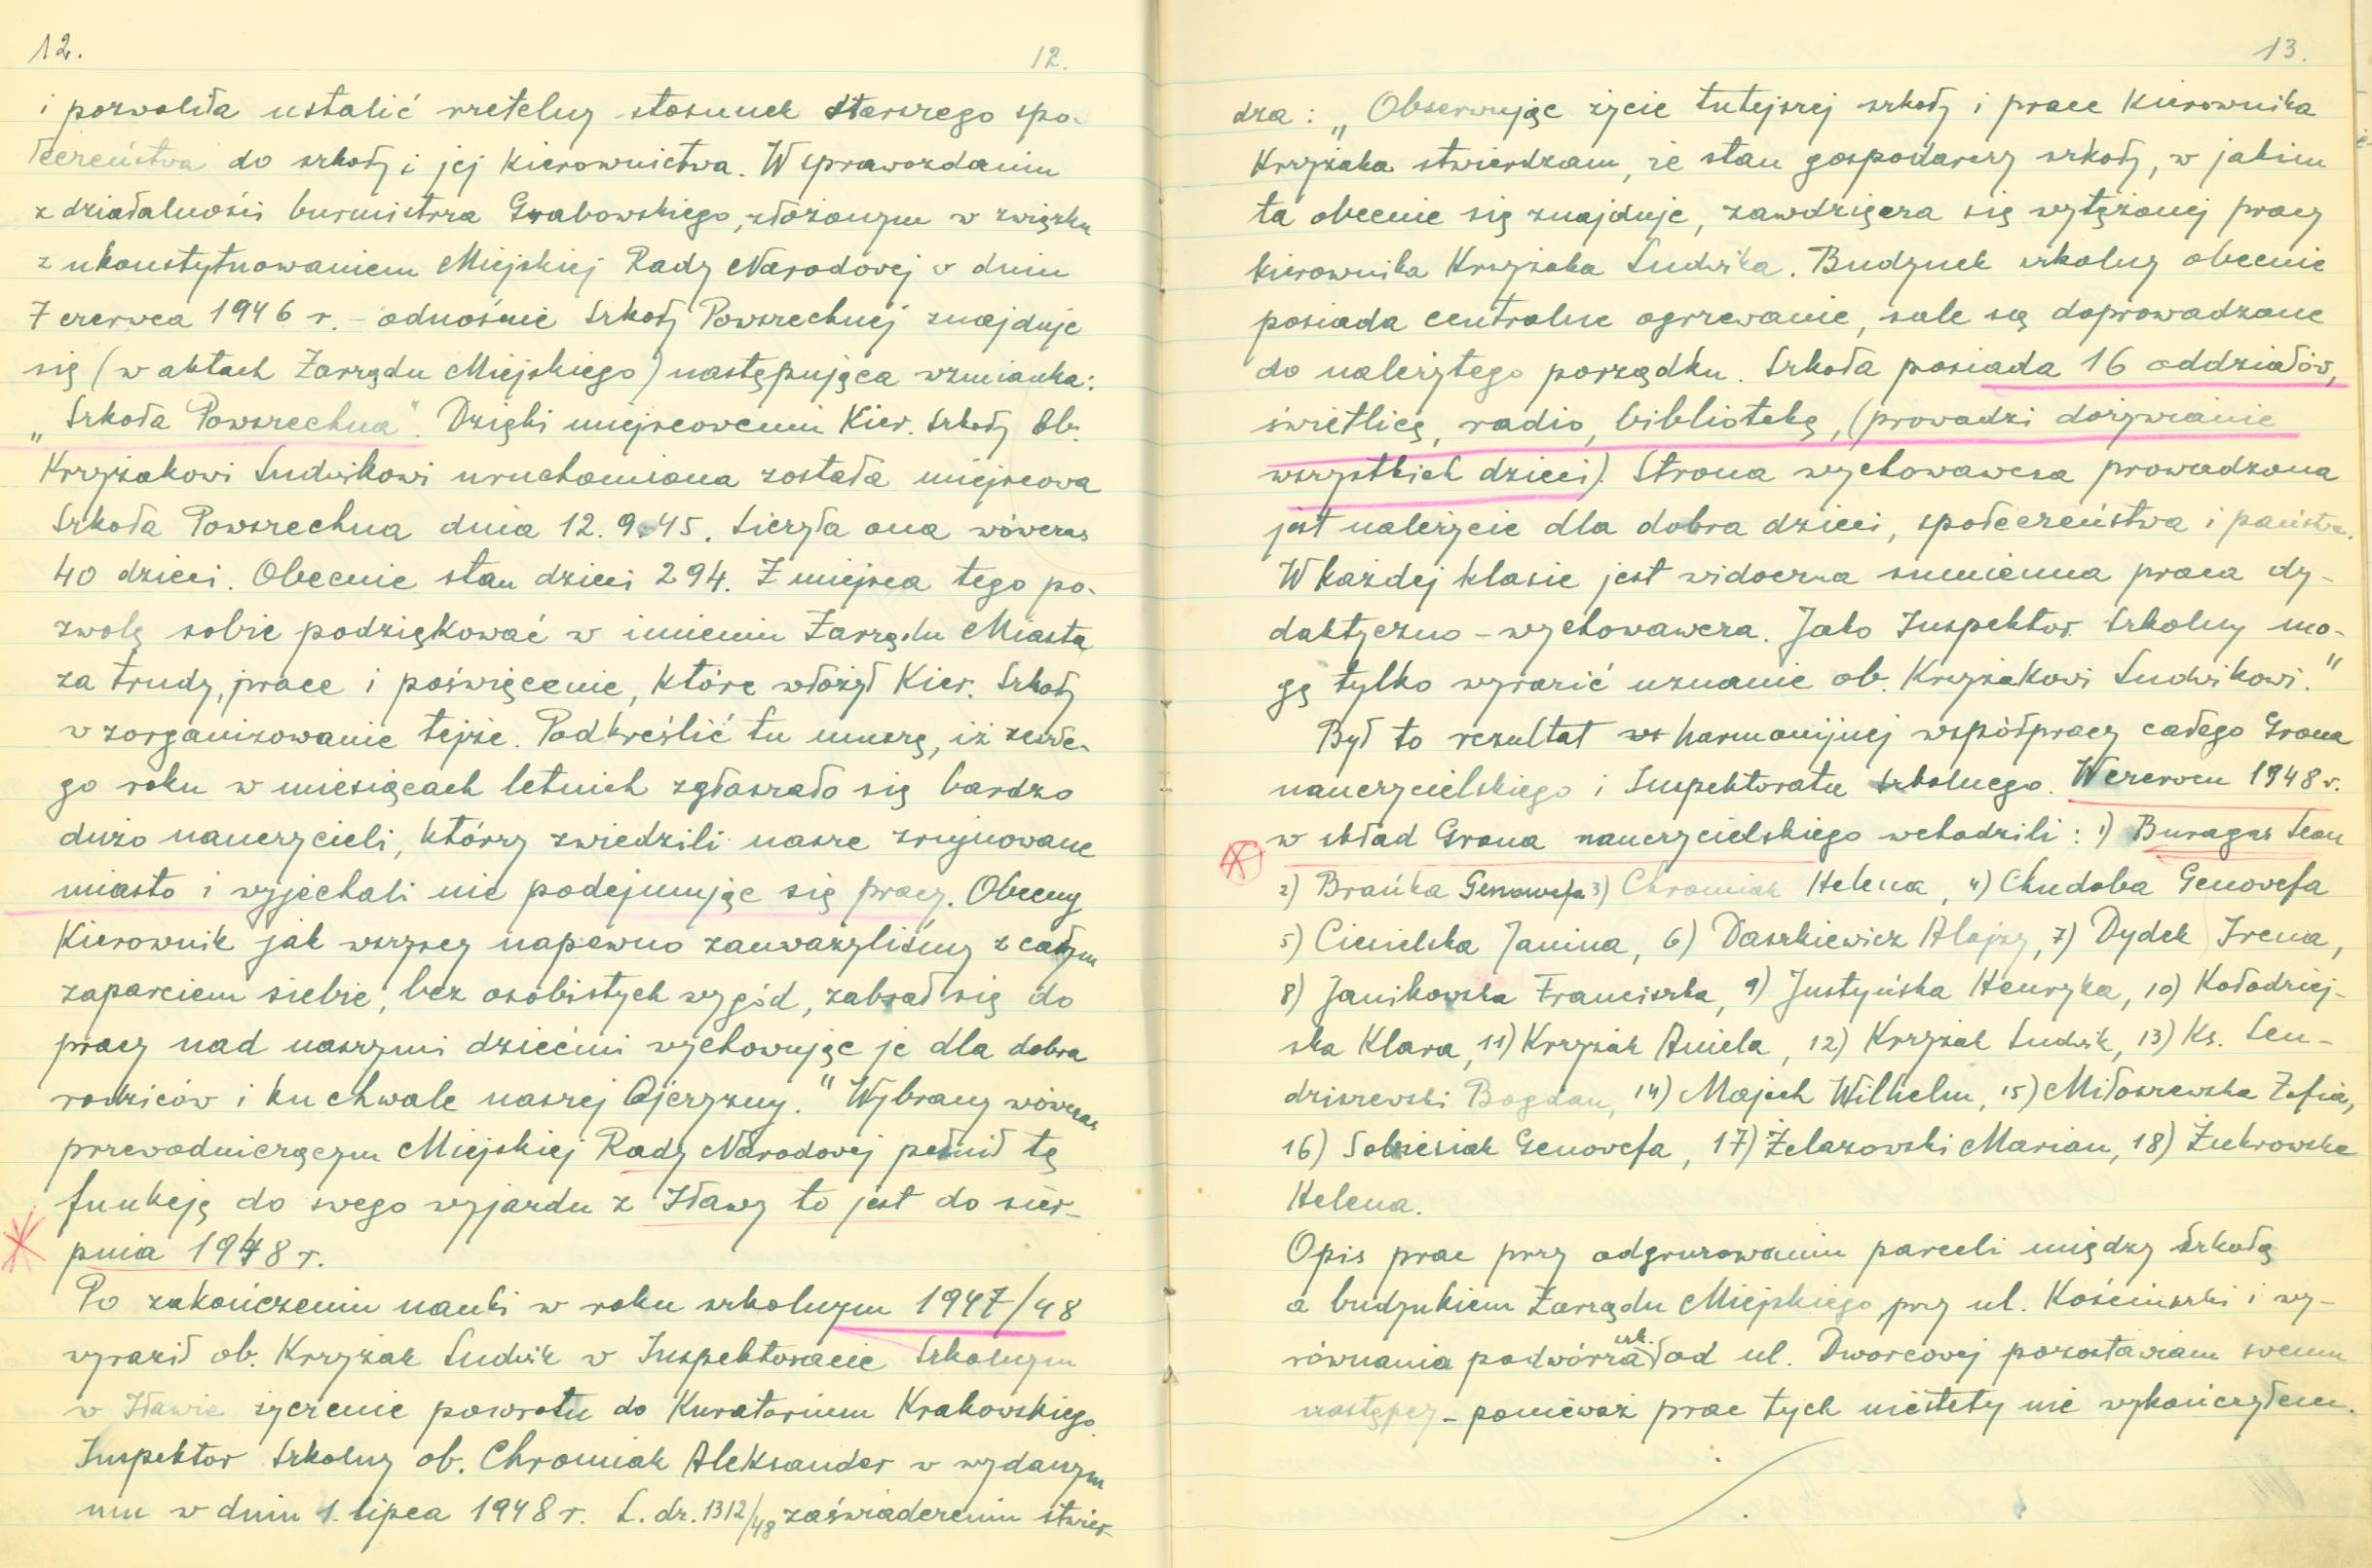 12.
12.
i pozwoliła ustalić rzetelny stosunek starszego spo-
łeczeństwa do szkoły i jej kierownictwa. W sprawozdaniu
z działalności burmistrza Grabowskiego, złożonym w związku
z ukonstytuowaniem Miejskiej Rady Narodowej w dniu
7 czerwca 1946 r. - odnośnie Szkoły Powszechnej znajduje
się (w aktach Zarządu Miejskiego) następująca wzmianka:
„Szkoła Powszechna". Dzięki miejscowemu Kier. Szkoły Ob.
Krzyżakowi Ludwikowi uruchomiona została miejscowa
Szkoła Powszechna dnia 12.9.45. Liczyła ona wówczas
40 dzieci. Obecnie stan dzieci 294. Z miejsca tego po-
zwolę sobie podziękować w imieniu Zarządu Miasta
za trudy, prace i poświęcenie, które włożył Kier. Szkoły
w zorganizowanie tejże. Podkreślić tu muszę, iż zeszłe-
go roku w miesiącach letnich zgłaszało się bardzo
dużo nauczycieli, którzy zwiedzili nasze zrujnowane
miasto i wyjechali nie podejmując się pracy. Obecny
Kierownik jak wszyscy napewno zauważyliśmy z całym
zaparciem siebie, bez osobistych wygód, zabrał się do
pracy nad naszymi dziećmi wychowując je dla dobra
rodziców i ku chwale naszej Ojczyzny." Wybrany wówczas
przewodniczącym Miejskiej Rady Narodowej pełnił tę
funkcję do swego wyjazdu z Iławy to jest do sier-
pnia 1948 r.
Po zakończeniu nauki w roku szkolnym 1947/48
wyraził ob. Krzyżak Ludwik w Inspektoracie Szkolnym
w Iławie życzenie powrotu do Kuratorium Krakowskiego.
Inspektor Szkolny ob. Chromiak Aleksander w wydanym
mu w dniu 1. lipca 1948 r. L. dz. 1312/48 zaświadczeniu stwier-
13.
dza: „Obserwując życie tutejszej szkoły i prace Kierownika
Krzyżaka stwierdzam, że stan gospodarczy szkoły, w jakim
ta obecnie się znajduje, zawdzięcza się wytężonej pracy
kierownika Krzyżaka Ludwika. Budynek szkolny obecnie
posiada centralne ogrzewanie, sale są doprowadzone
do należytego porządku. Szkoła posiada 16 oddziałów,
świetlicę, radio, bibliotekę, (prowadzi dożywianie
wszystkich dzieci). Strona wychowawcza prowadzona
jest należycie dla dobra dzieci, społeczeństwa i państwa.
W każdej klasie jest widoczna sumienna praca dy-
daktyczno-wychowawcza. Jako Inspektor Szkolny mo-
gę tylko wyrazić uznanie ob. Krzyżakowi Ludwikowi."
Był to rezultat harmonijnej współpracy całego Grona
nauczycielskiego i Inspektoratu Szkolnego. W czerwcu 1948 r.
w skład Grona nauczycielskiego wchodzili: 1) Buragas Leon
2) Brańka Genowefa 3) Chromiak Helena, 4) Chudoba Genowefa
5) Cienielska Janina, 6) Daszkiewicz Alojzy, 7) Dydek Irena,
8) Janikowska Franciszka, 9) Justyńska Henryka, 10) Kołodziej-
ska Klara, 11) Krzyżak Aniela, 12) Krzyżak Ludwik, 13) Ks. Len-
dziszewski Bogdan, 14) Majach Wilhelm, 15) Miłoszewska Zofia,
16) Sobiesiak Genowefa, 17) Żelazowski Marian, 18) Żukrowska
Helena.
Opis prac przy odgruzowaniu parceli między Szkołą
a budynkiem Zarządu Miejskiego przy ul. Kościuszki i wy-
równania podwórza szk. od ul. Dworcowej pozostawiam swemu
następcy - ponieważ prac tych niestety nie wykończyłem.